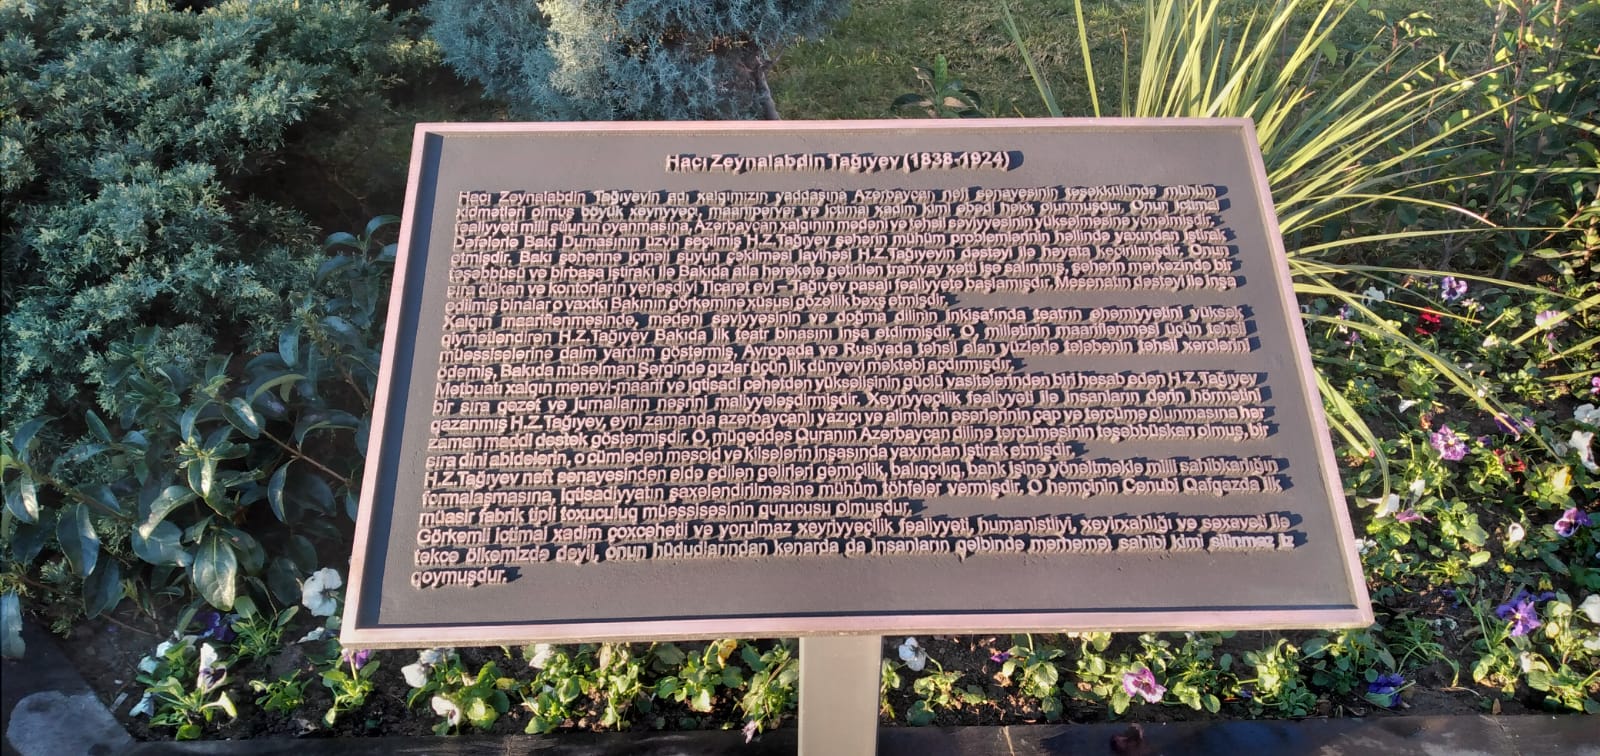 Hacı Zeynalabdin Tağıyev (1838-1924)
Hacı Zeynalabdin Tağıyevin adı xalqımızın yaddaşına Azərbaycan neft sənayesinin təşəkkülündə mühüm
xidmətləri olmuş böyük xeyriyyəçi, maarifpərvər və ictimai xadim kimi əbədi həkk olunmuşdur. Onun ictimai
fəaliyyəti milli şüurun oyanmasına, Azərbaycan xalqının mədəni və təhsil səviyyəsinin yüksəlməsinə yönəlmişdir.
Dəfələrlə Bakı Dumasının üzvü seçilmiş H.Z.Tağıyev şəhərin mühüm problemlərinin həllində yaxından iştirak
etmişdir. Bakı şəhərinə içməli suyun çəkilməsi layihəsi H.Z.Tağıyevin dəstəyi ilə həyata keçirilmişdir. Onun
təşəbbüsü və birbaşa iştirakı ilə Bakıda atla hərəkətə gətirilən tramvay xətti işə salınmış, şəhərin mərkəzində bir
sıra dükan və kontorların yerləşdiyi Ticarət evi – Tağıyev pasajı fəaliyyətə başlamışdır. Mesenatın dəstəyi ilə inşa
edilmiş binalar o vaxtkı Bakının görkəminə xüsusi gözəllik bəxş etmişdir.
Xalqın maariflənməsində, mədəni səviyyəsinin və doğma dilinin inkişafında teatrın əhəmiyyətini yüksək
qiymətləndirən H.Z.Tağıyev Bakıda ilk teatr binasını inşa etdirmişdir. O, millətinin maariflənməsi üçün təhsil
müəssisələrinə daim yardım göstərmiş, Avropada və Rusiyada təhsil alan yüzlərlə tələbənin təhsil xərclərini
ödəmiş, Bakıda müsəlman Şərqində qızlar üçün ilk dünyəvi məktəbi açdırmışdır.
Mətbuatı xalqın mənəvi-maarif və iqtisadi cəhətdən yüksəlişinin güclü vasitələrindən biri hesab edən H.Z.Tağıyev
bir sıra qəzet və jurnalların nəşrini maliyyələşdirmişdir. Xeyriyyəçilik fəaliyyəti ilə insanların dərin hörmətini
qazanmış H.Z.Tağıyev, eyni zamanda azərbaycanlı yazıçı və alimlərin əsərlərinin çap və tərcümə olunmasına hər
zaman maddi dəstək göstərmişdir. O, müqəddəs Quranın Azərbaycan dilinə tərcüməsinin təşəbbüskarı olmuş, bir
sıra dini abidələrin, o cümlədən məscid və kilsələrin inşasında yaxından iştirak etmişdir.
H.Z.Tağıyev neft sənayesindən əldə edilən gəlirləri gəmiçilik, balıqçılıq, bank işinə yönəltməklə milli sahibkarlığın
formalaşmasına, iqtisadiyyatın şaxələndirilməsinə mühüm töhfələr vermişdir. O həmçinin Cənubi Qafqazda ilk
müasir fabrik tipli toxuculuq müəssisəsinin qurucusu olmuşdur.
Görkəmli ictimai xadim çoxcəhətli və yorulmaz xeyriyyəçilik fəaliyyəti, humanistliyi, xeyirxahlığı və səxavəti ilə
təkcə ölkəmizdə deyil, onun hüdudlarından kənarda da insanların qəlbində mərhəmət sahibi kimi silinməz iz
qoymuşdur.